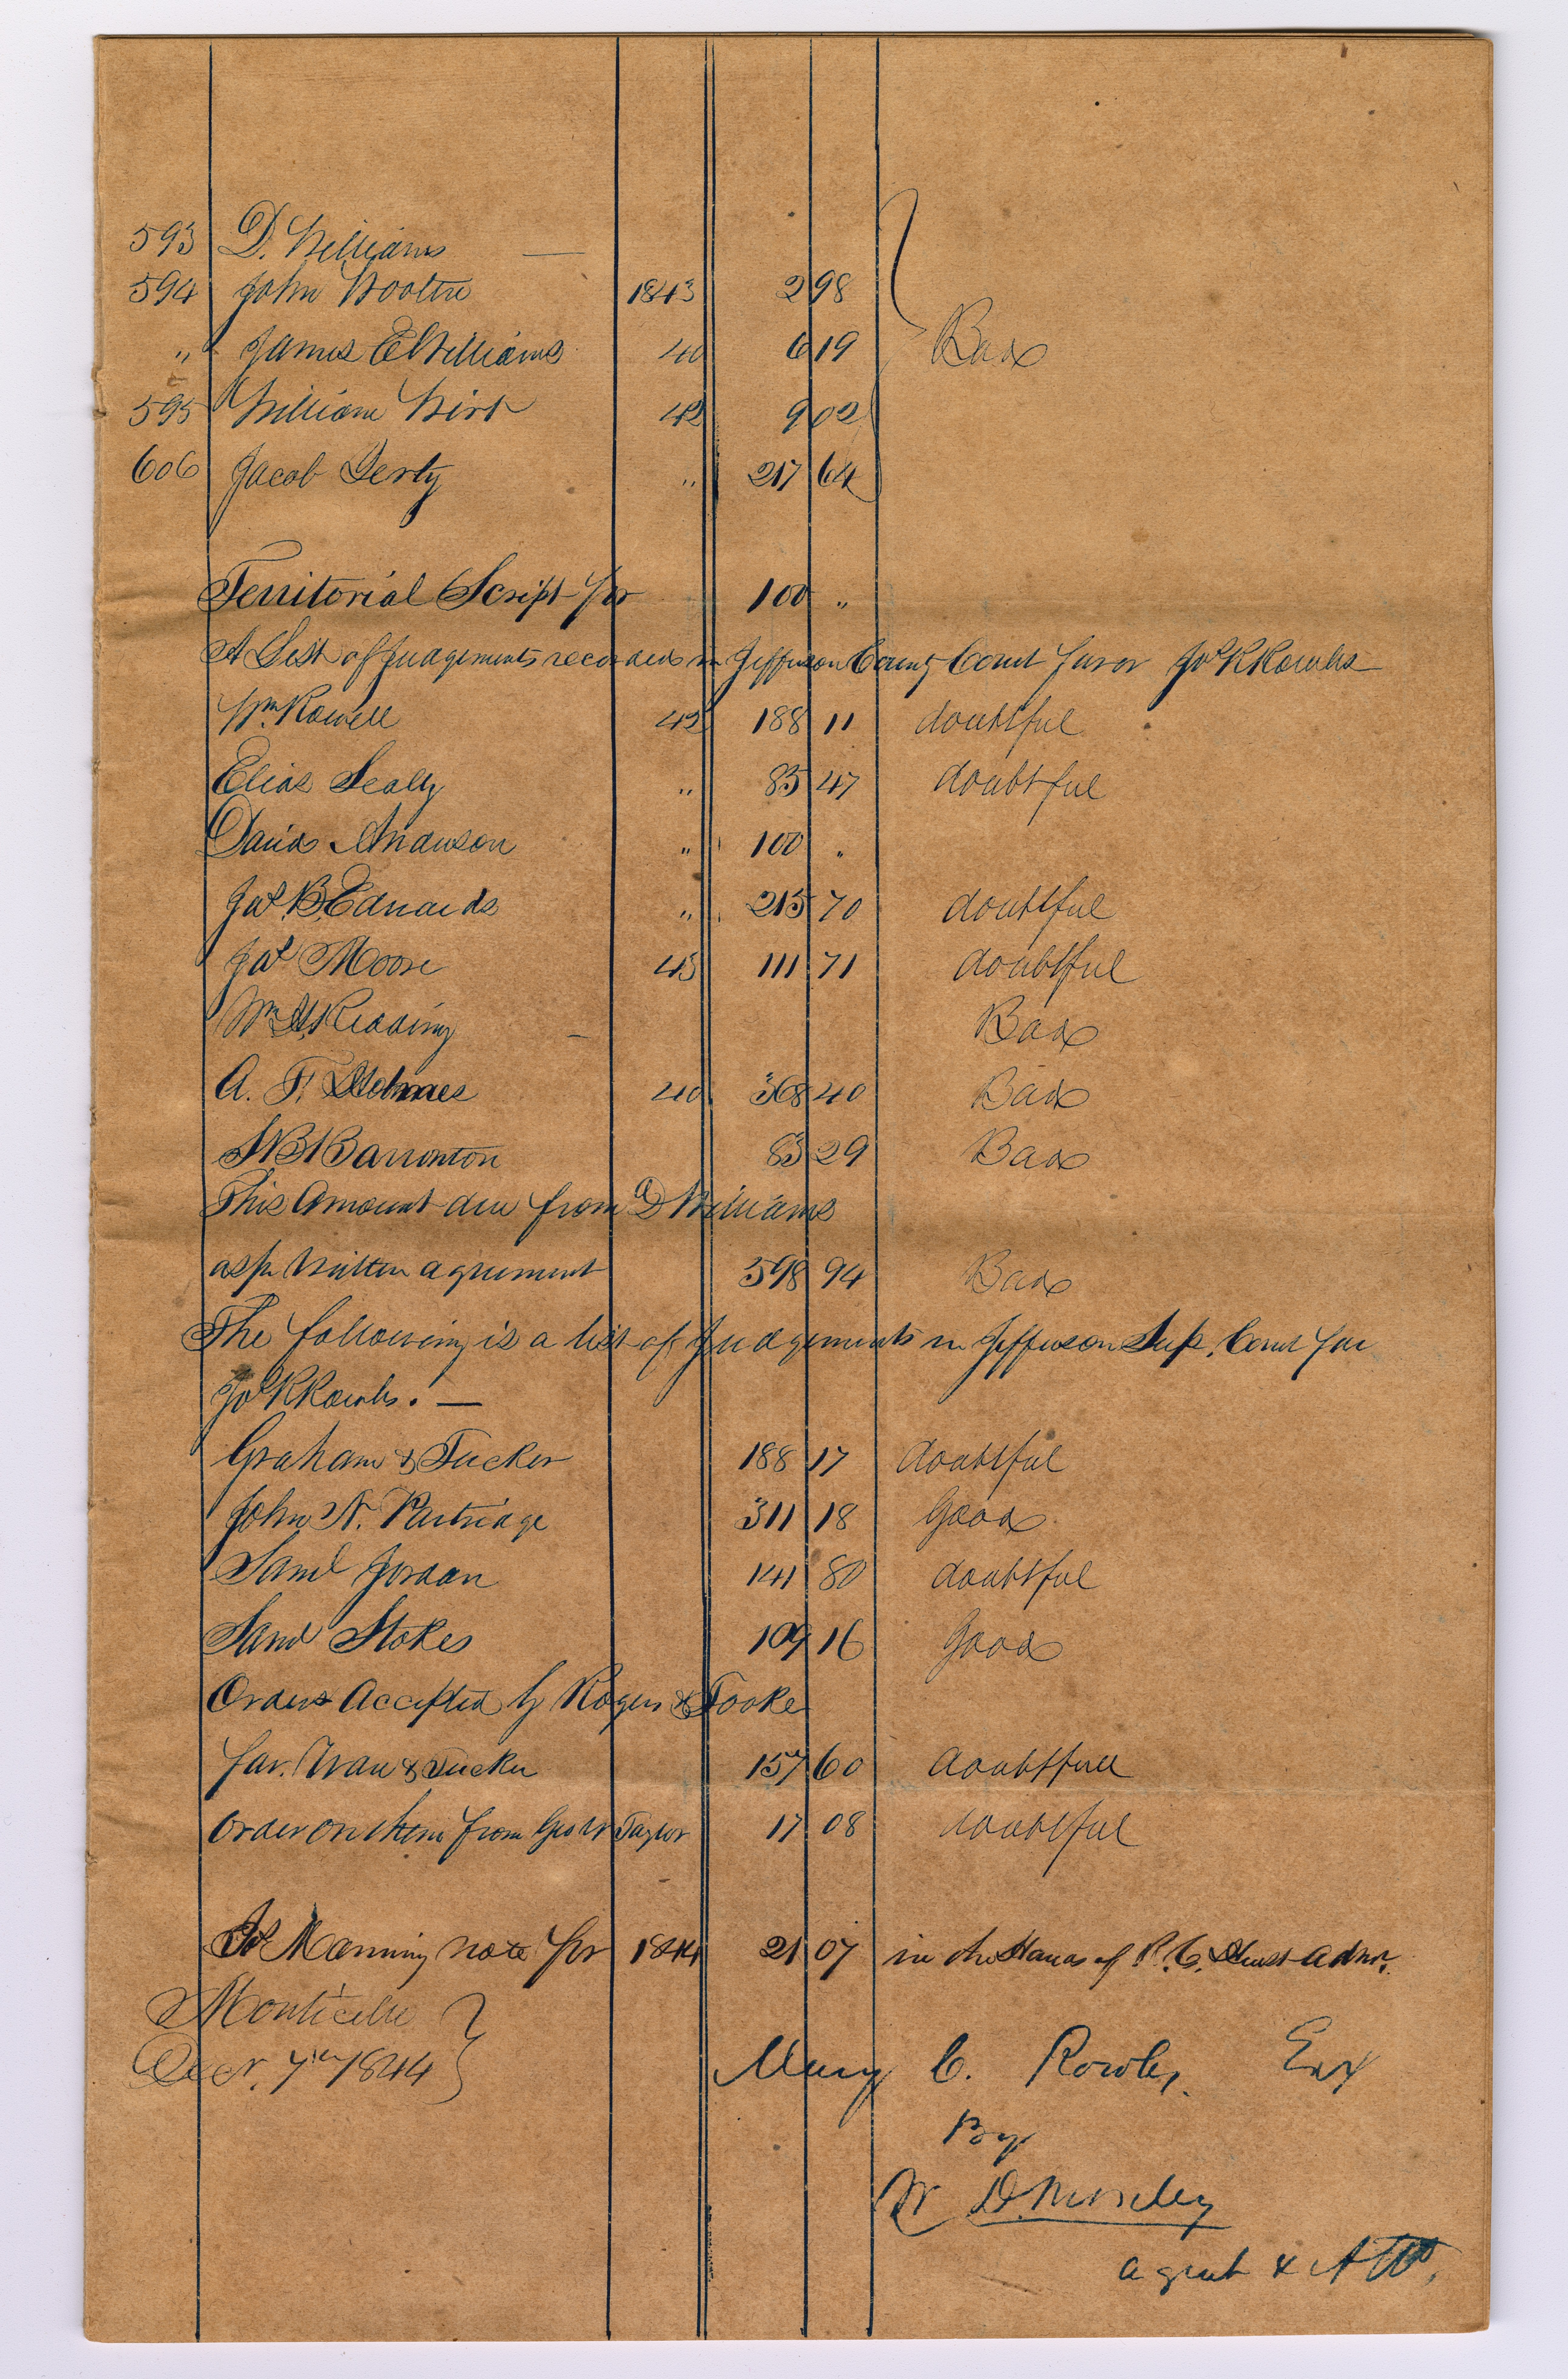 593 D. Williams —
594 John Wooten 1843 2 98
" James E Williams 40 6 19 Bad
595 William Wirt 42 9 02
606 Jacob " 217 64
Territorial Script for 100 "
A List of Judgements recorded in Jefferson County Court favor Jos R Rowles
Wm Rowell 42 188 11 doubtful
Elias Sealy " 85 47 doubtful
David Anderson " 100 "
Jas. B. Edwards " 215 70 doubtful
Jas Moore 43 111 71 doubtful
Wm H. Reading — Bad
A. F. Holmes 40 368 40 Bad
Barrinton 83 29 Bad
This Amount due from D Williams
as pr written agreement 598 94 Bad
The following is a list of Judgements in Jefferson Sup. Court fav
Jos R Rowles. —
Graham & Tucker 188 17 doubtful
John N. Partridge 311 18 Good
Saml Jordan 141 80 doubtful
Saml Stokes 109 16 Good
Orders Accepted by Rogers & Tooke
fav. & Tucker 157 60 doubtfull
order on them from Geo W Taylor 17 08 doubtful
Manning note for 1844 21 07 in the Hands of Admr.
Monticello
Decr. 7th 1844
Mary C. Rowles. Exx
By
W D. Moseley
agent & Atto.